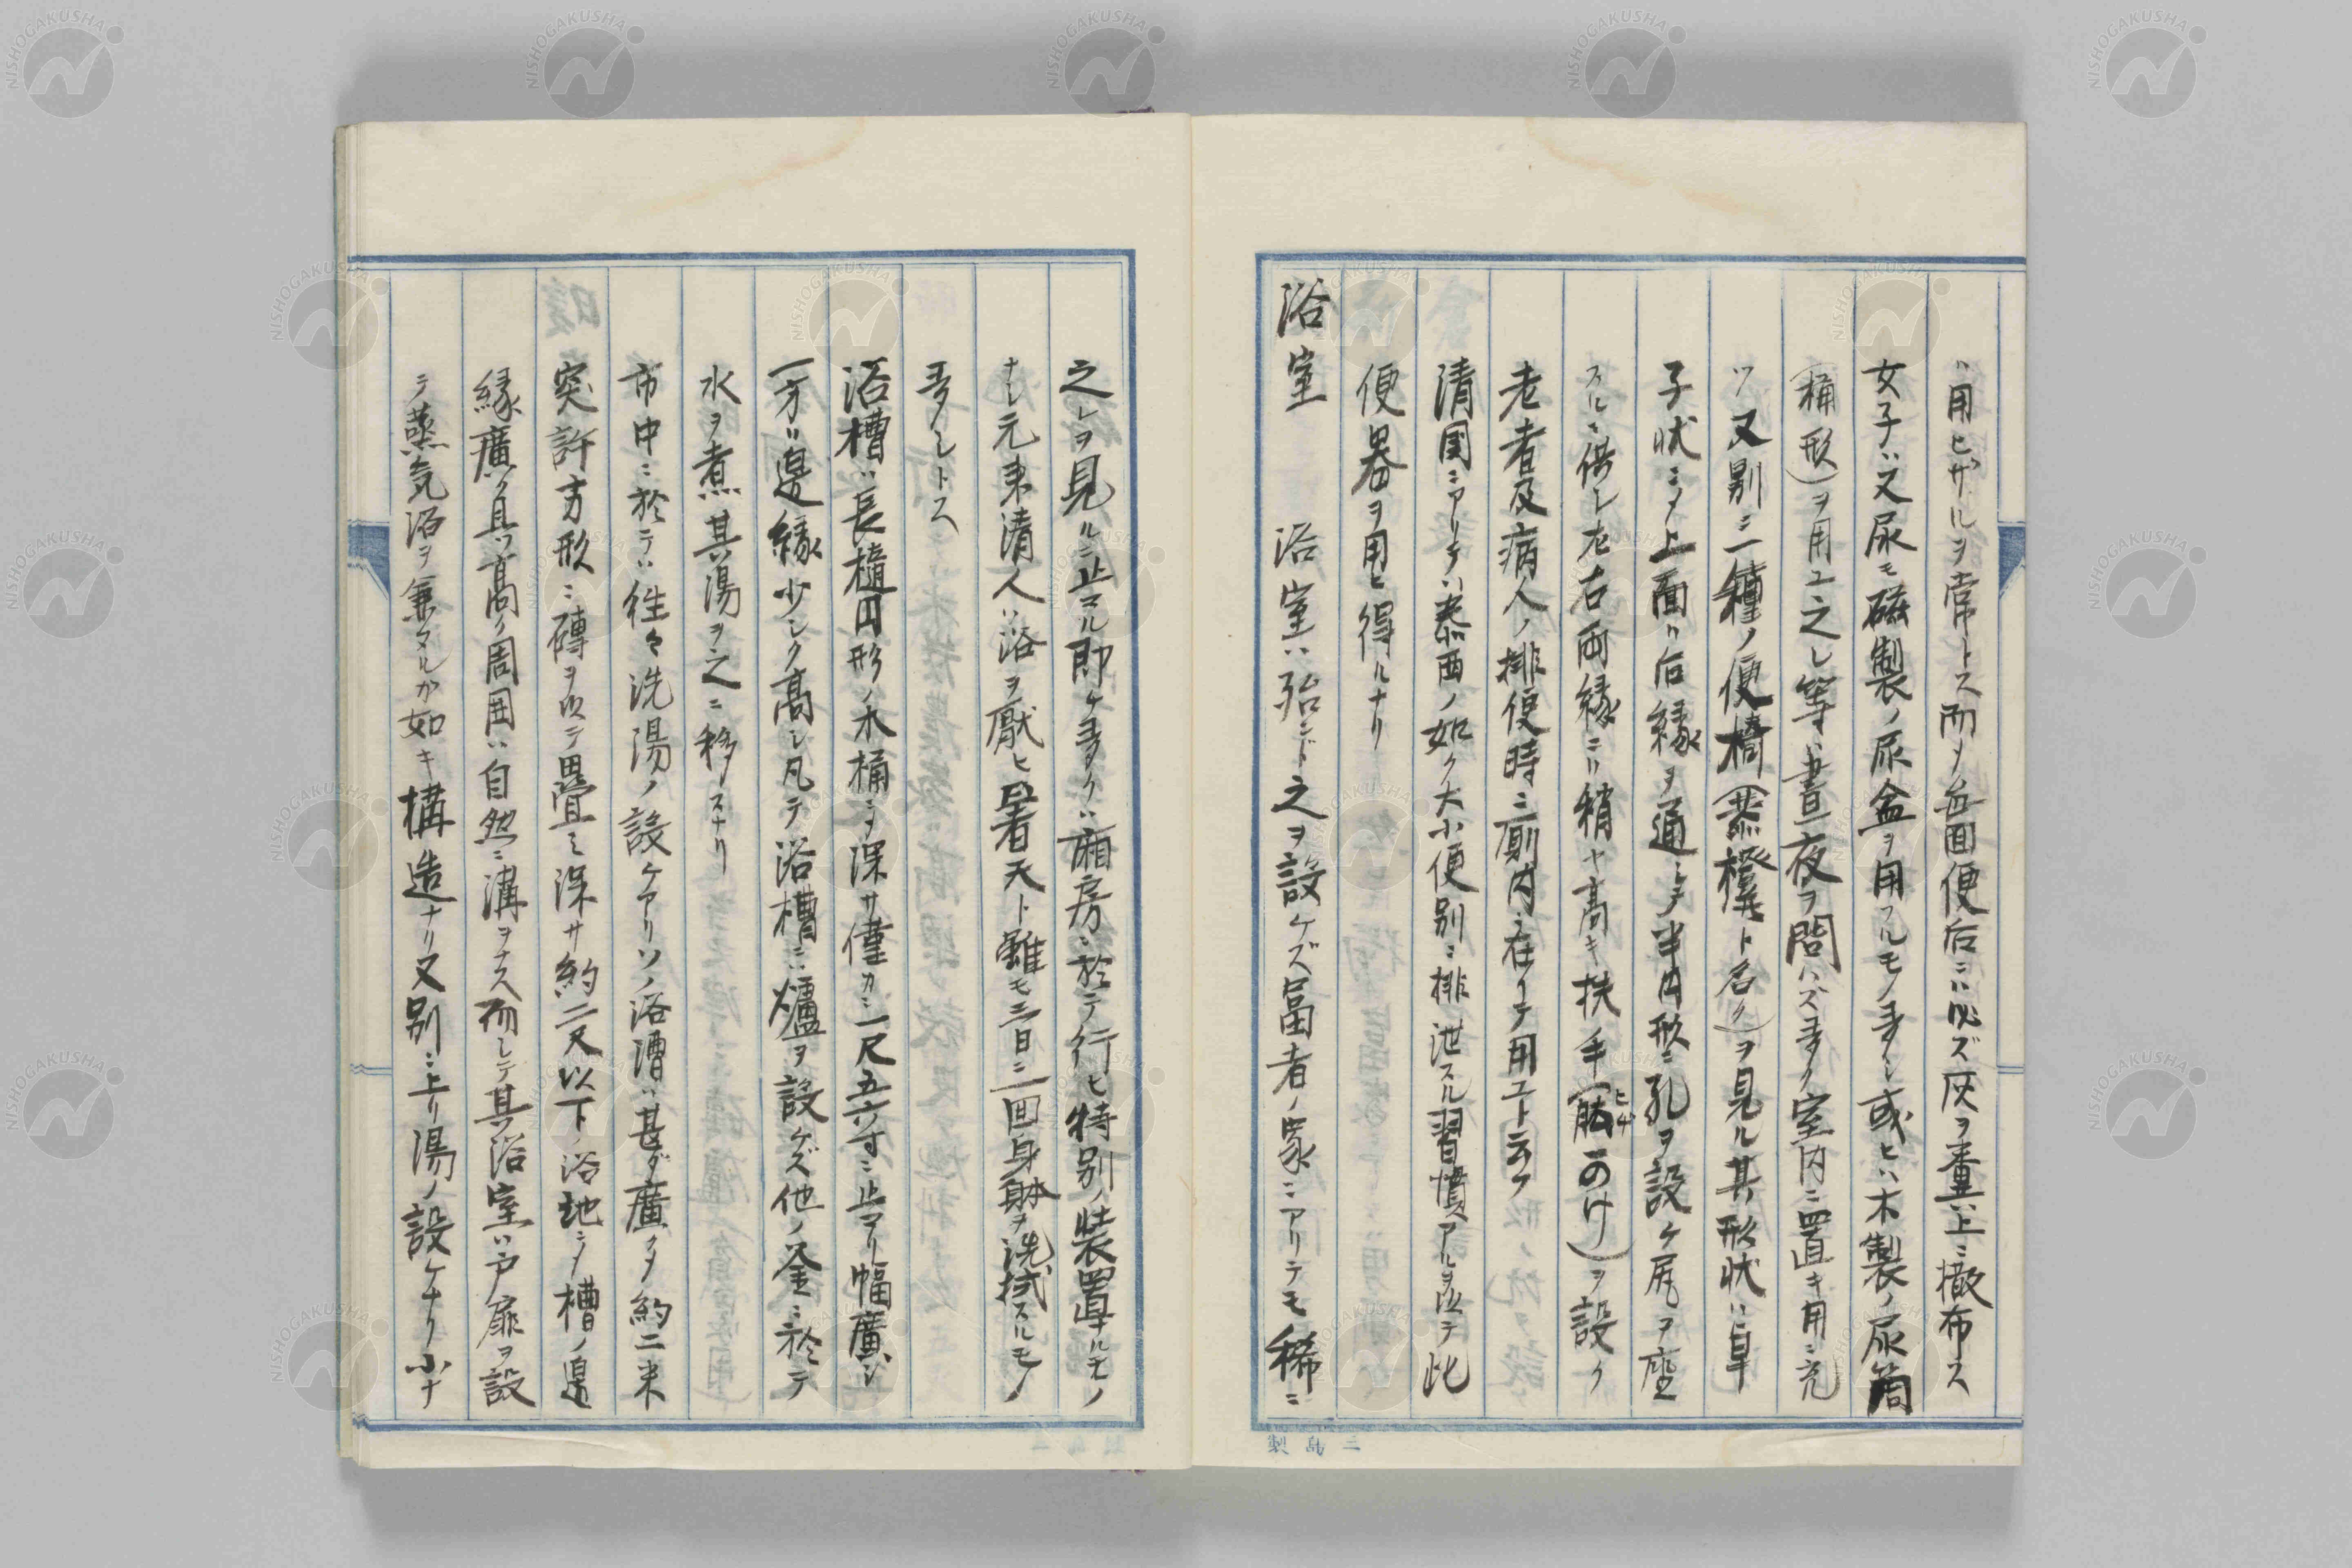 ハ用ヒザルヲ常トス而〆毎回便后ニハ必ズ灰ヲ糞上ニ撒布ス
女子ハ又尿モ磁製ノ尿盆ヲ用フルモノ多シ或ヒハ木製ノ尿筒
(桶形)ヲ用ユ之レ等ハ昼夜ヲ問ハズ多ク室内ニ置キ用ニ充
ツ又別ニ一種ノ便椅(恭櫈ト名ク)ヲ見ル其形状ハ早
子状ニ〆上面ハ后縁ヲ通シテ半円形ニ孔ヲ設ケ尻ヲ座
スルニ供シ左右両縁ニハ稍ヤ高キ扶手(肱ヒヂかけ)ヲ設ク
老者及病人ノ排便時ニ厠内ニ在リテ用ユト云フ
清国ニアリテハ泰西ノ如ク大小便別ニ排泄スル習慣アルヲ以テ此
便器ヲ用ヒ得ルナリ
浴室 浴室ハ殆ンド之ヲ設ケズ冨者ノ家ニアリテモ稀ニ
之レヲ見ルニ止マル即ケ多クハ廂房ニ於テ行ヒ特別ノ装置アルモノ
ナシ元来清人ハ浴ヲ厭ヒ暑天ト雖モ三日ニ一回身躰ヲ洗拭スルモノ
多シトス
浴槽ハ長楕円形ノ木桶ニ〆深サ僅カニ一尺五六寸ニ止マリ幅廣シ
一方ハ邊縁少シク高シ凡テ浴槽ニハ爐ヲ設ケズ他ノ釜ニ於テ
水ヲ煮其湯ヲ之ニ移スナリ
市中ニ於テハ往々洗湯ノ設ケアリソノ浴漕ハ甚ダ廣ク〆約二米
突許方形ニ磚ヲ以テ畳ミ深サ約二尺以下ノ浴地ニ〆槽ノ邉
縁廣ク且ツ高ク周囲ハ自然ニ溝ヲナス而シテ其浴室ハ戸扉ヲ設
テ蒸気浴ヲ兼タルカ如キ構造ナリ又別ニ上リ湯ノ設ケナリ小ナ
三島製
NISHOGAKUSHA